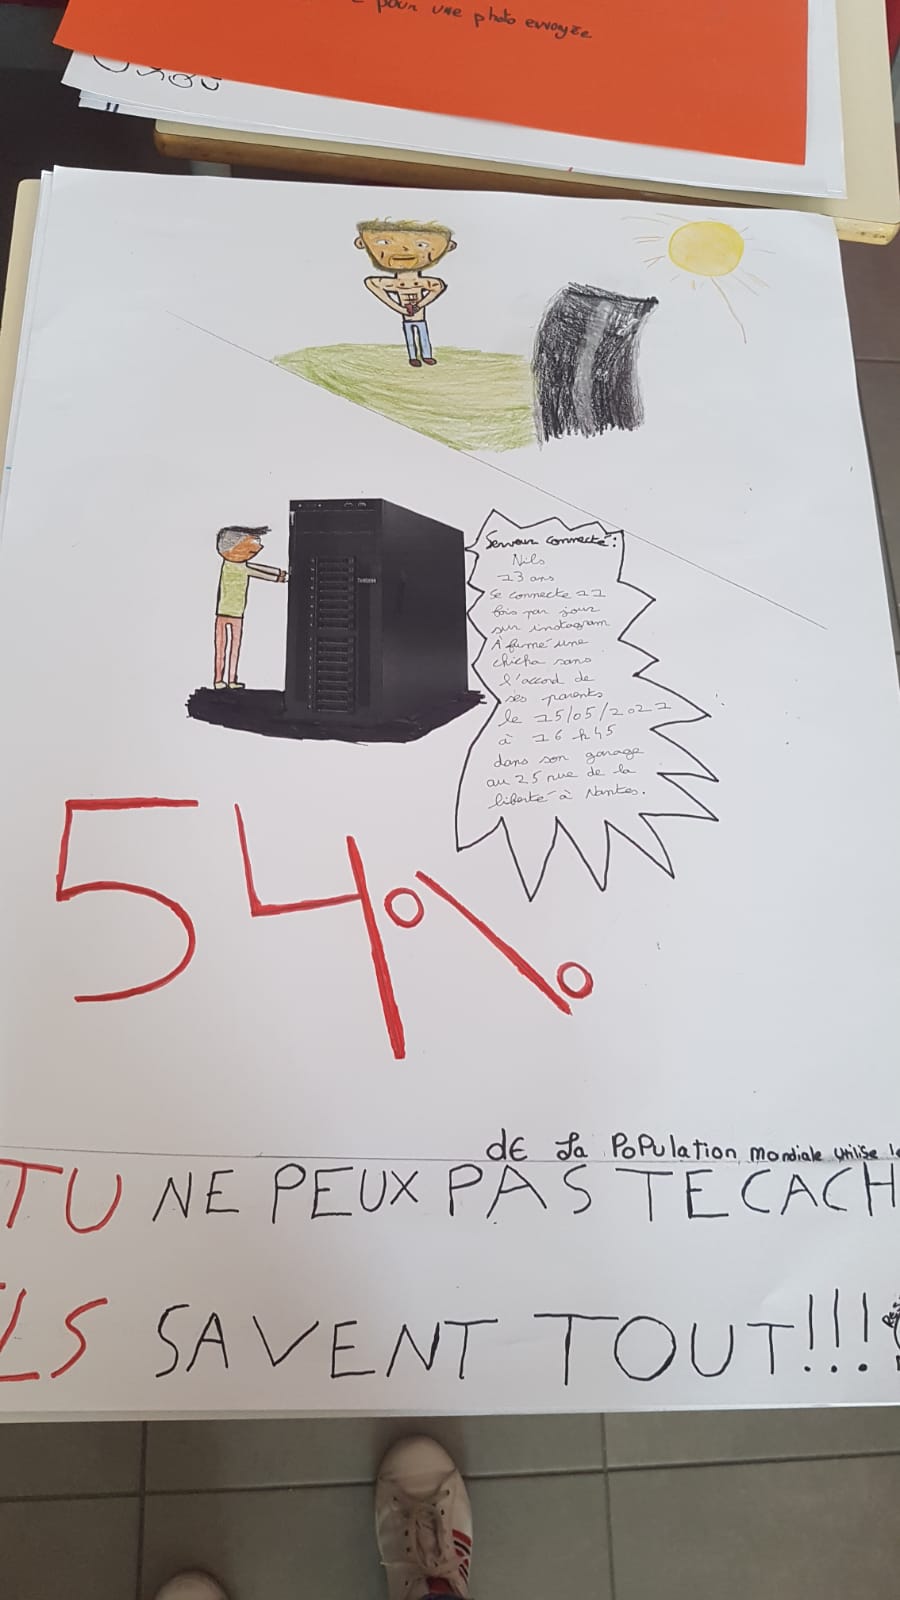 pour une photo envoyée
Serveur connecté :
Nils
13 ans
Se connecte 11
fois par jour
sur instagram
À fumé une
chicha sans
l'accord de
ses parents
le 15/05/2021
à 16 h 45
dans son garage
au 25 rue de la
liberté à Nantes.
54%
de la population mondiale utilise
TU NE PEUX PAS TE CACH
ILS SAVENT TOUT!!!